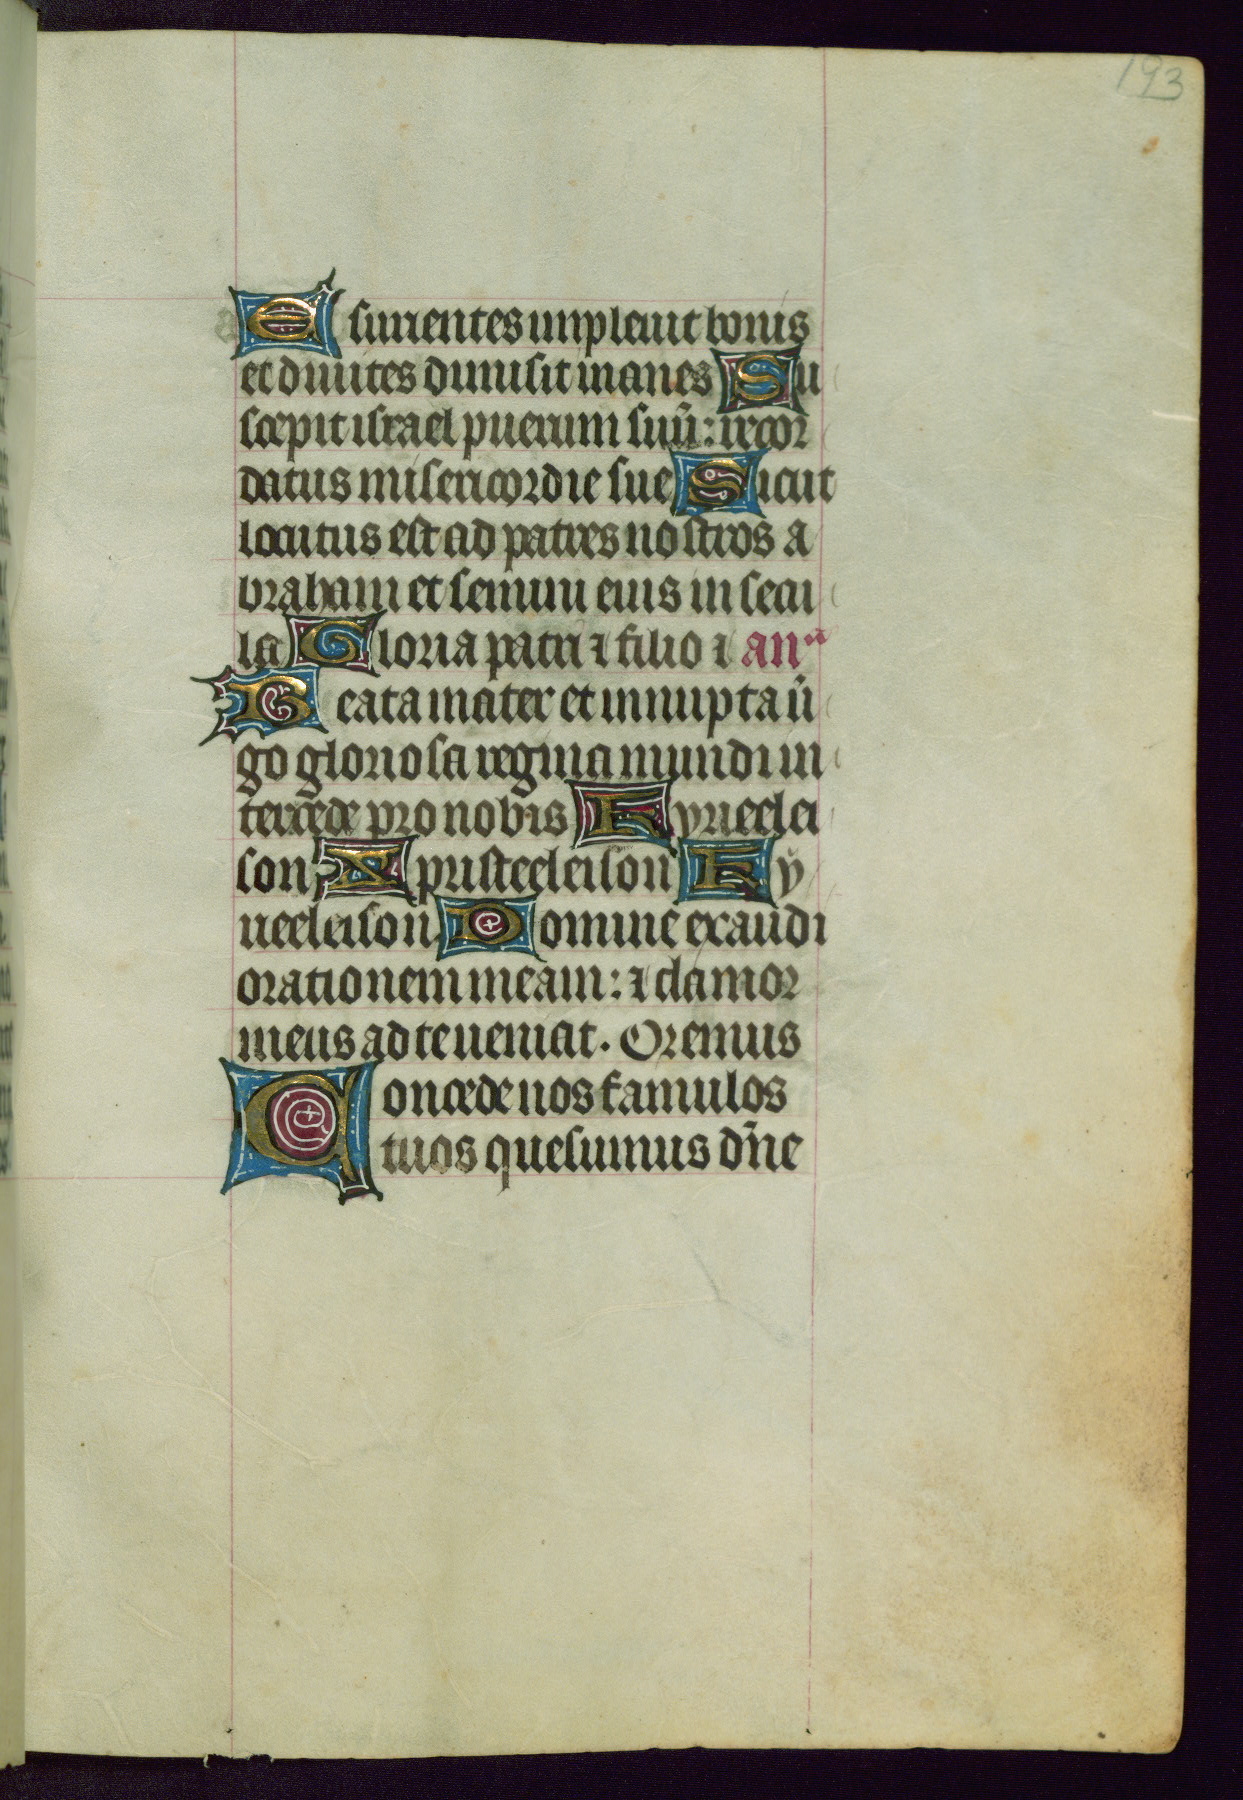 193
Esurientes impleuit bonis
et diuites dimisit inanes Su
scepit israel puerum suū: recor
datus misericordie sue Sicut
locutus est ad patres nostros a
braham et semini eius in secu
la Gloria patri ⁊ filio ⁊ anᵃ
Beata mater et innupta ū
go gloriosa regina mundi in
tercede pro nobis Kyrieelei
son Xpristeeleison Ky
rieeleison Domine exaudi
orationem meam: ⁊ clamor
meus ad te ueniat. Oremus
Concede nos famulos
tuos quesumus dn̄e